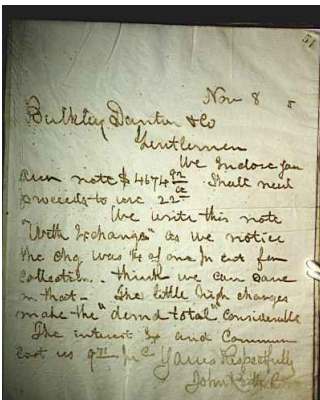 51
Nov 8 5
Bulkley Danton & Co
Gentlemen
We Inclose for
note $4674 Shall need
proceeds to use 22
We write this note
"With Exchange" as we notice
the chg was of one for
collection. think we can save
on that - The little high charges
make the "demd total" considerable
The interest Ex and Commsn
cost us Yours Respectfully
John